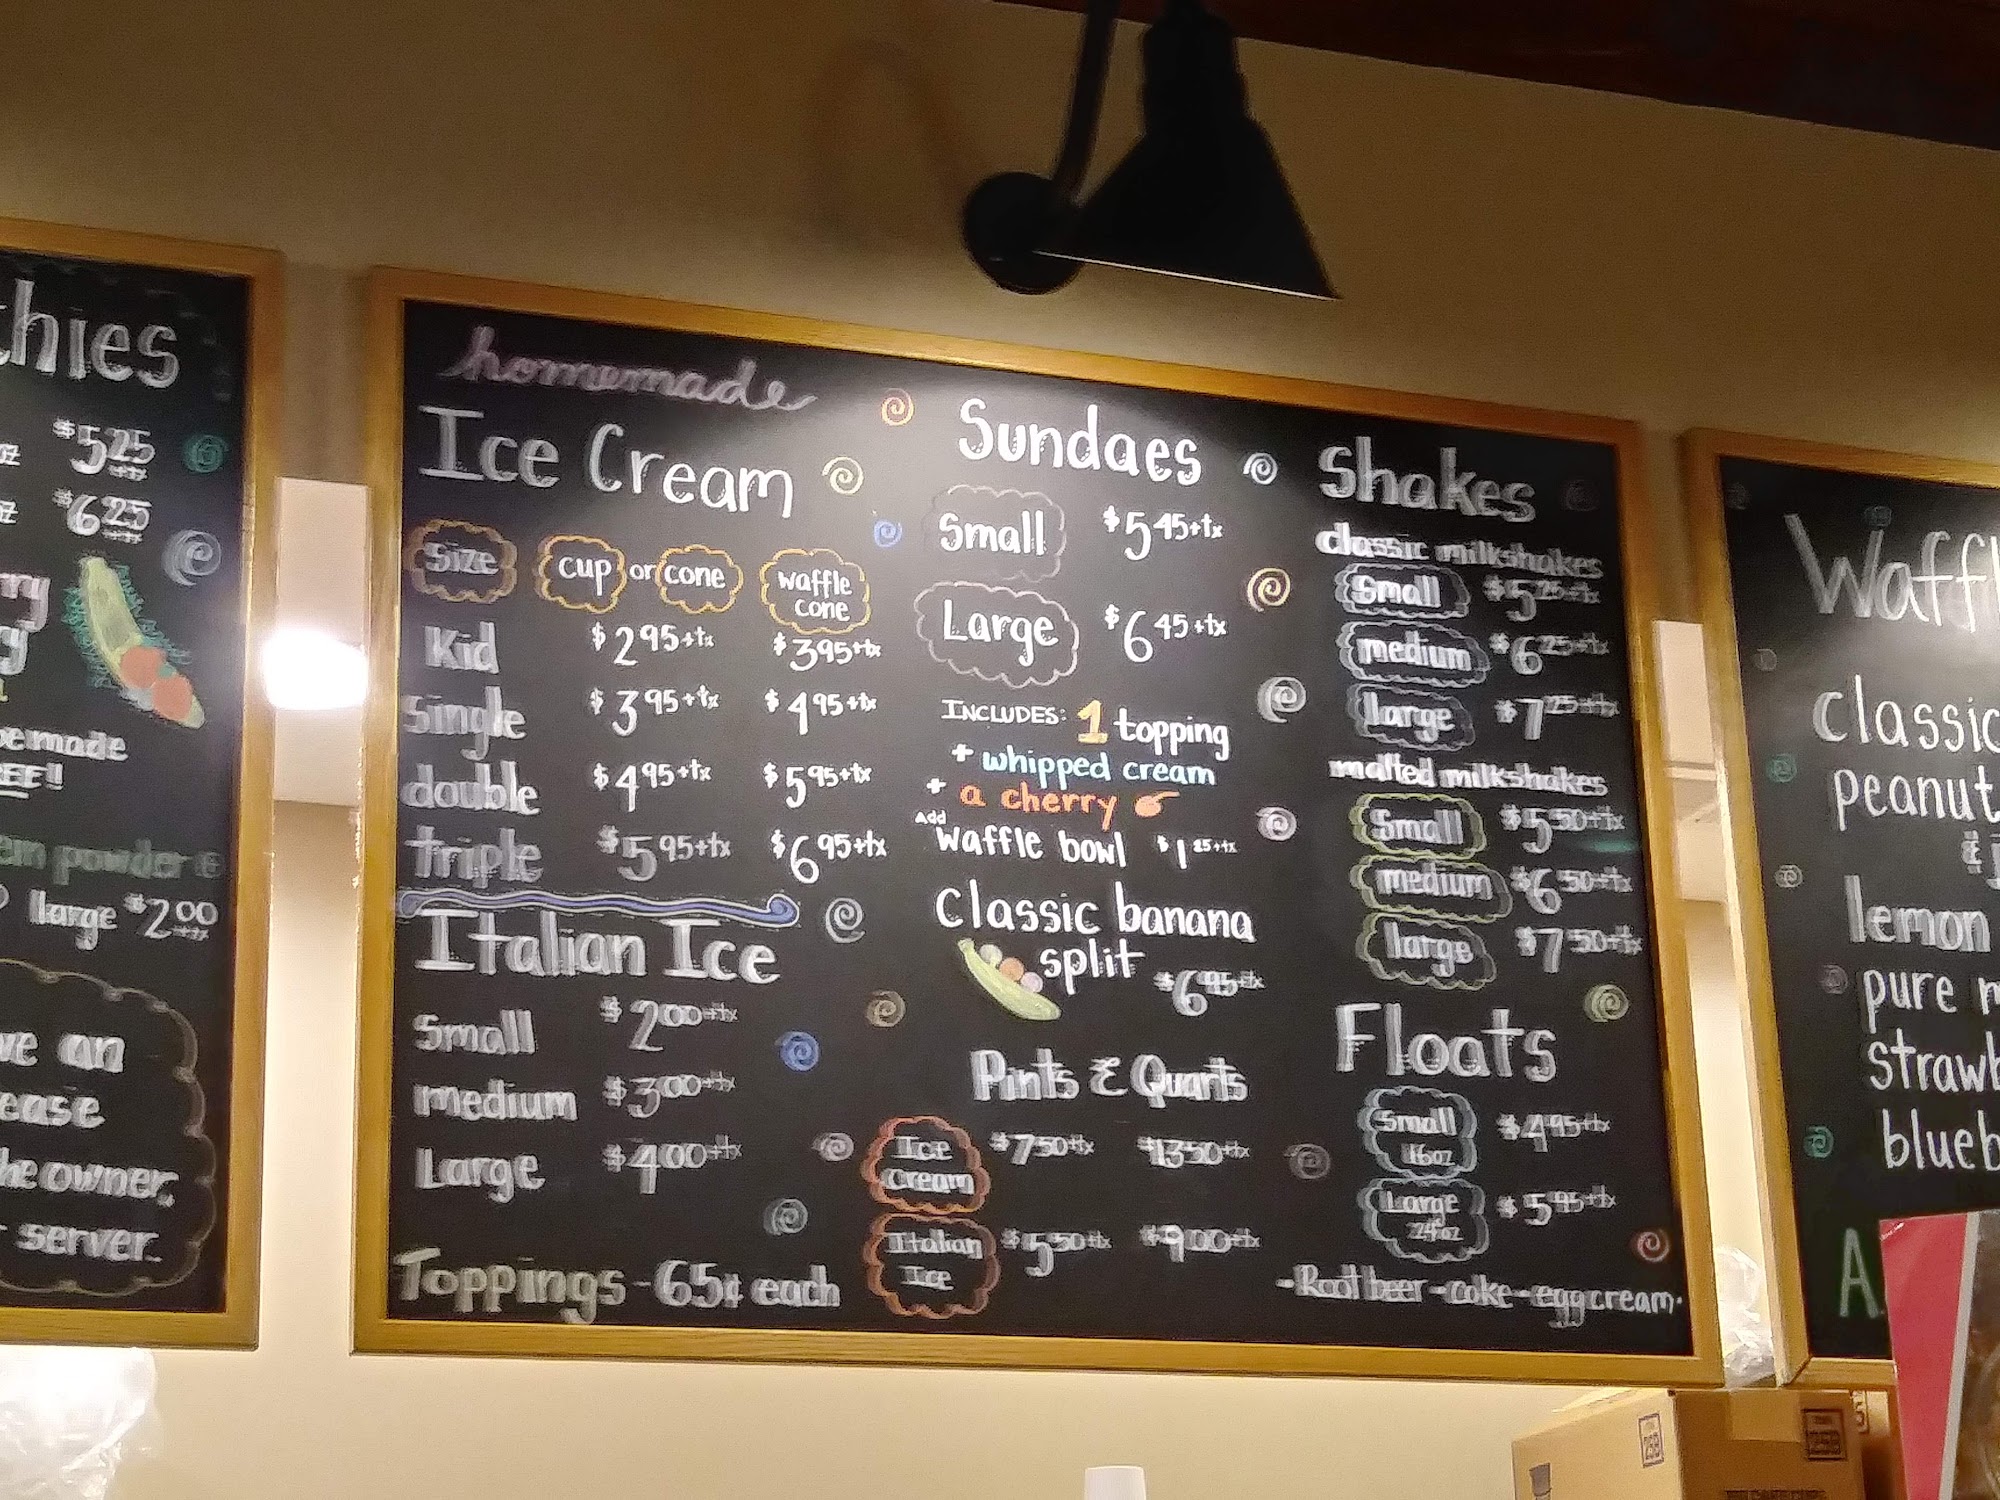 hies
$5.25
+tx
oz
$6.25
+tx
oz
rry
y
emade
EE!!
em powder
large $2.00
+tx
ve an
ease
he owner,
server.
homemade
Ice Cream
Size cup or cone waffle
cone
Kid $2.95+tx $3.95+tx
Single $3.95+tx $4.95+tx
double $4.95+tx $5.95+tx
triple $5.95+tx $6.95+tx
Italian Ice
Small $2.00+tx
medium $3.00+tx
Large $4.00+tx
Toppings - 65¢ each
Sundaes
Small $5.45+tx
Large $6.45+tx
INCLUDES: 1 topping
+ whipped cream
+ a cherry
Add
waffle bowl
Classic banana
split $6.95+tx
Pints & Quarts
Ice
cream $7.50+tx $13.50+tx
Italian
Ice $5.50+tx $9.00+tx
Shakes
classic milkshakes
Small $5.25+tx
medium $6.25+tx
large $7.25+tx
malted milkshakes
Small $5.50+tx
medium $6.50+tx
large $7.50+tx
Floats
Small
16oz $4.95+tx
Large
24oz $5.95+tx
-Root beer-coke-egg cream-
Waffl
classic
peanut
&
lemon
pure m
strawb
blueb
A